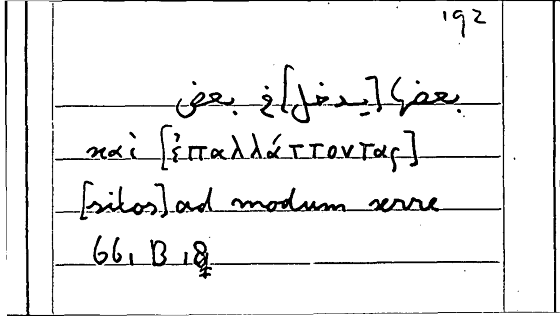 192
بعضها [يدخل] في بعض
καὶ [ἐπαλλάττοντας]
[sitos] ad modum serre
66, B, 8